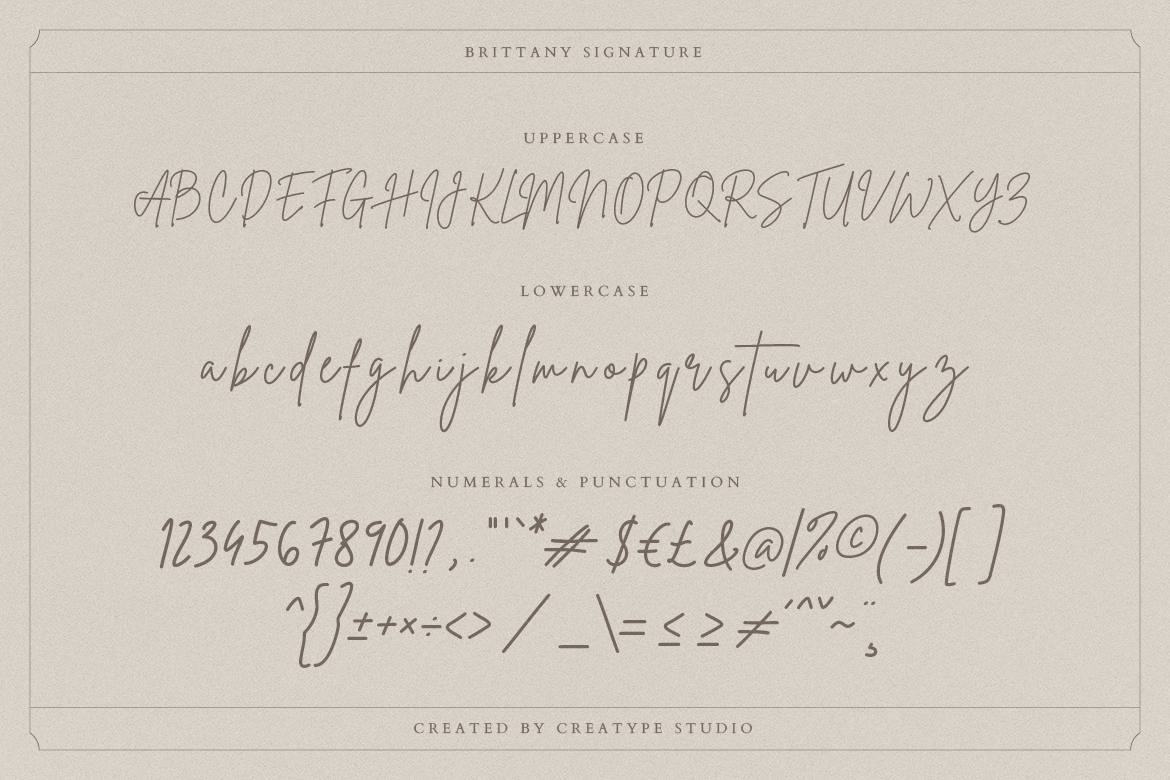 BRITTANY SIGNATURE
UPPERCASE
ABCDEFGHIJKLMNOPQRSTUVWXYZ
LOWERCASE
abcdefghijklmnopqrstuvwxyz
NUMERALS & PUNCTUATION
1234567890!?,."'`*# $€£&@|%©(-)[ ]
^{}±+×÷<> / _\= ≤ ≥ ≠ ´^ˇ~¨¸
CREATED BY CREATYPE STUDIO